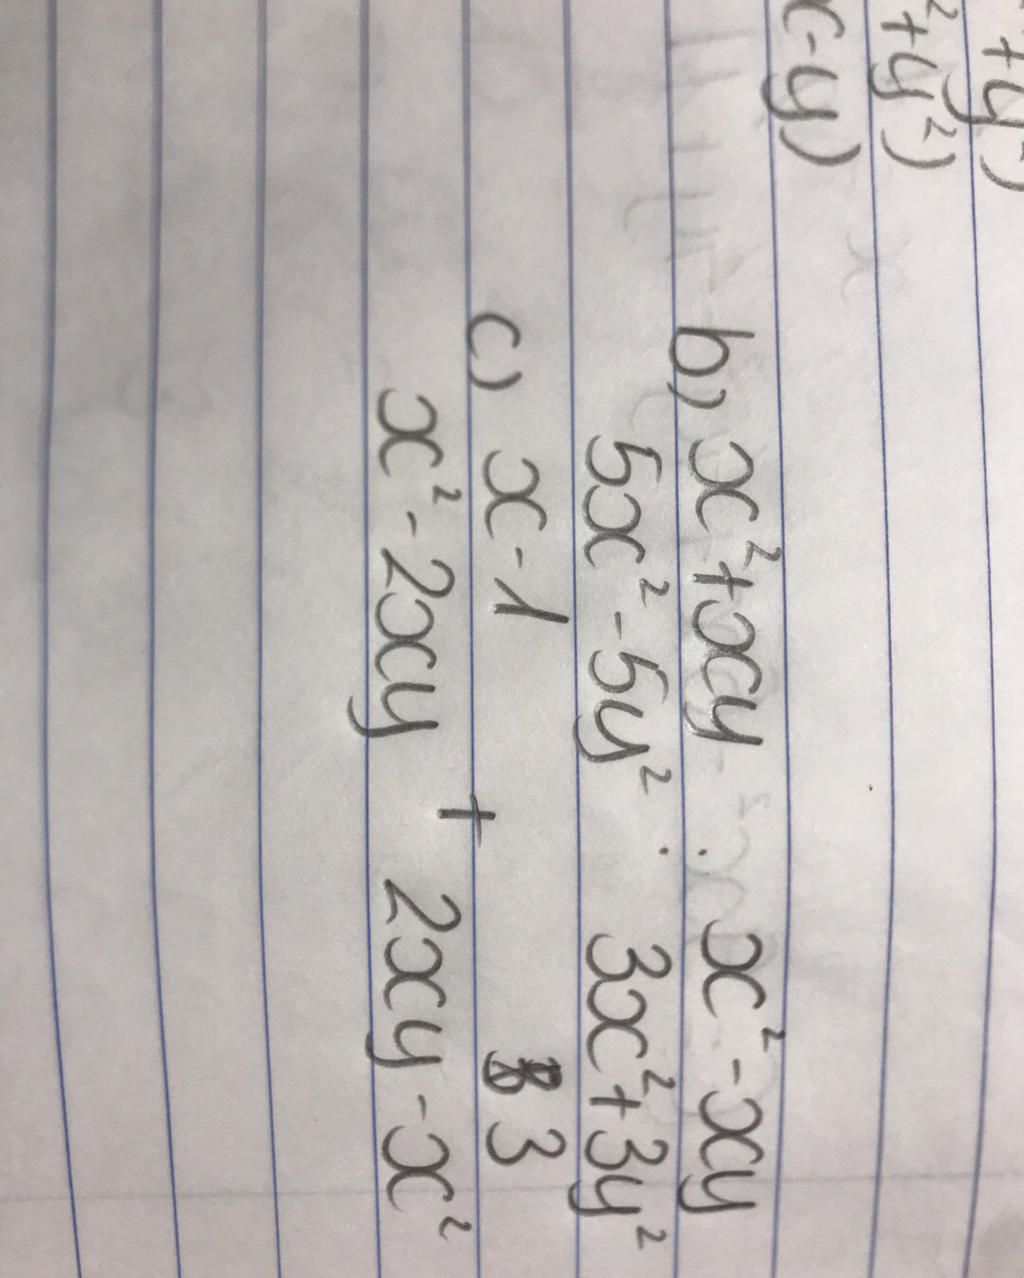 +y²)
²+y²)
x-y)
b) x²+xy : x²-xy
5x²-5y² 3x²+3y²
c) x-1 + 3
x²-2xy 2xy-x²